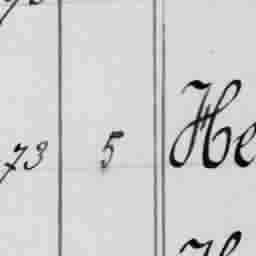 73 5 He